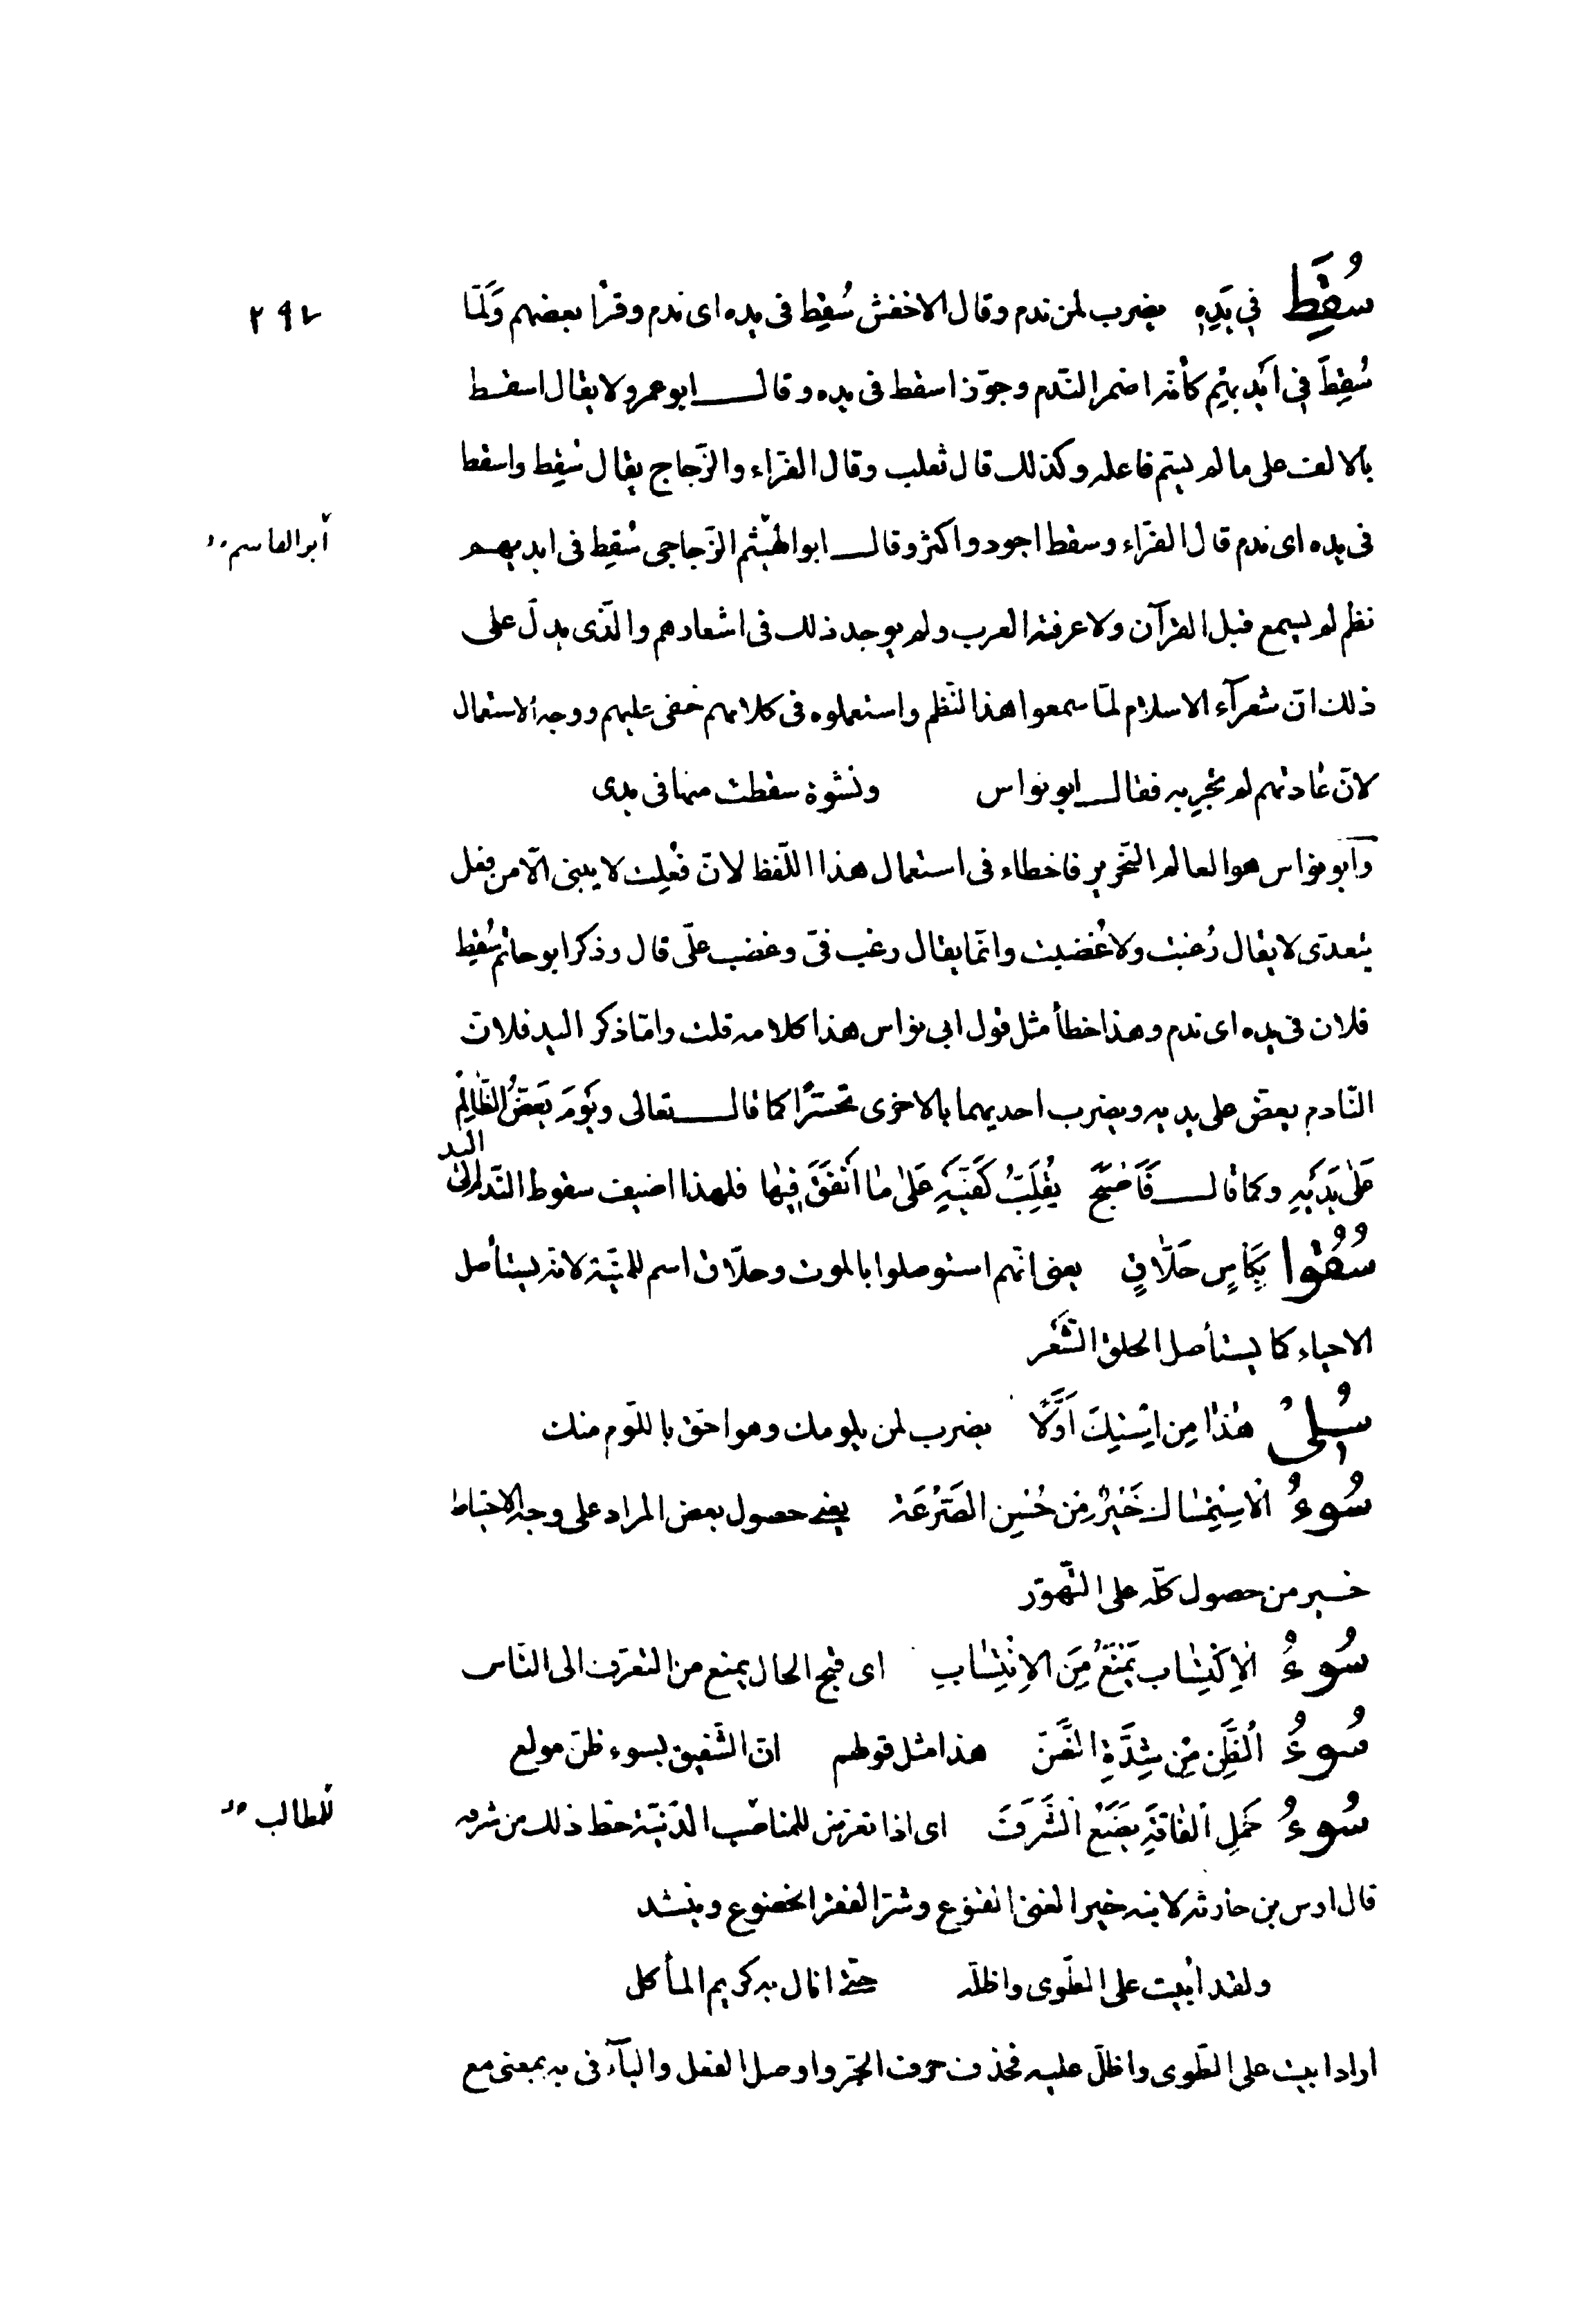 سُقِطَ فِي يَدِهِ يضرب لمن ندم وقال الاخفش سُقِط فى يده اى ندم وقرأ بعضهم وَلَمّا
٢٩٧
سُقِطَ فِي اَيْدِيهِم كأنّه اضمر النّدم وجوّز اسقط فى يده وقال ابو عمرو لا يقال اسقط
بالالف على ما لم يسمّ فاعله وكذلك قال ثعلب وقال الفرّاء والزّجاج يقال سُقِط واسقط
فى يده اى ندم قال الفرّاء وسقط اجود واكثر وقال ابو الهَيْثم الزّجاجى سُقِط فى ايديهم
أبو القاسم
نظم لم يسمع قبل القرآن ولا عرفته العرب ولم يوجد ذلك فى اشعارهم والّذى يدلّ على
ذلك انّ شعرآء الاسلام لمّا سمعوا هذا النّظم واستعملوه فى كلامهم خفى عليهم ووجه الاستعمال
لانّ عادتهم لم تجرِ به فقال ابو نواس ونشوة سقطت منها فى يدى
وأبو نواس هو العالم النّحرير فاخطاء فى استعمال هذا اللّفظ لانّ فُعِلت لا يبنى الّا من فعل
يتعدّى لا يقال رُغبت ولا غُضبت وانّما يقال رغب فىّ وغضب علىّ قال وذكر ابو حاتم سُقِط
فلان فى يده اى ندم وهذا خطأ مثل قول ابى نواس هذا كلامه قلت وامّا ذكر اليد فلانّ
النّادم يعضّ على يديه ويضرب احديهما بالاخرى تحسّرًا كما قال تعالى وَيَوْمَ يَعَضُّ الظّالِمُ
عَلىٰ يَدَيْهِ وكما قال فَاَصْبَحَ يُقَلِّبُ كَفَّيْهِ عَلىٰ مٰا اَنْفَقَ فِيهٰا فلهذا اضيف سقوط النّدم الى اليد
سُقُوا بِكَأسٍ حَلّاقٍ يعنى انّهم استوصلوا بالموت وحلّاق اسم للمنيّة لانّه يستأصل
الاحياء كما يستأصل الحلق الشَّعر
هٰذٰا مِن اِسْتِكَ اَوَّلًا يضرب لمن يلومك وهو احقّ باللّوم منك
سُوءُ الْاِسْتِمْسٰاك خَيْرٌ مِن حُسْنِ الصَّرْعَة يعنى حصول بعض المراد على وجه الاحتياط
خير من حصول كلّه على التّهوّر
سُوءُ الْاِكْتِسٰاب يَمْنَعُ مِنَ الاِنْتِسٰابِ اى قبح الحال يمنع من التعرّف الى النّاس
سُوءُ اَلظَّنِ مِنْ شِدَّةِ الضَّنِّ هذا مثل قولهم انّ الشّفيق بسوء ظنّ مولع
سُوءُ حَمْلِ اَلْفٰاقَةِ يَضَعُ اَلشَّرَفَ اى اذا تعرّض للمناصب الدّنيّة حطّ ذلك من شرفه
للمطالب
قال اوس بن حارثه لابنه خير الغنى القنوع وشرّ الفقر الخضوع وينشد
ولقد أبيت على الطّوى واظلّه حتّى انال به كريم المأكل
اراد ابيت على الطّوى واظلّ عليه فحذف حرف الجرّ واوصل الفعل والبآء فى به بمعنى مع